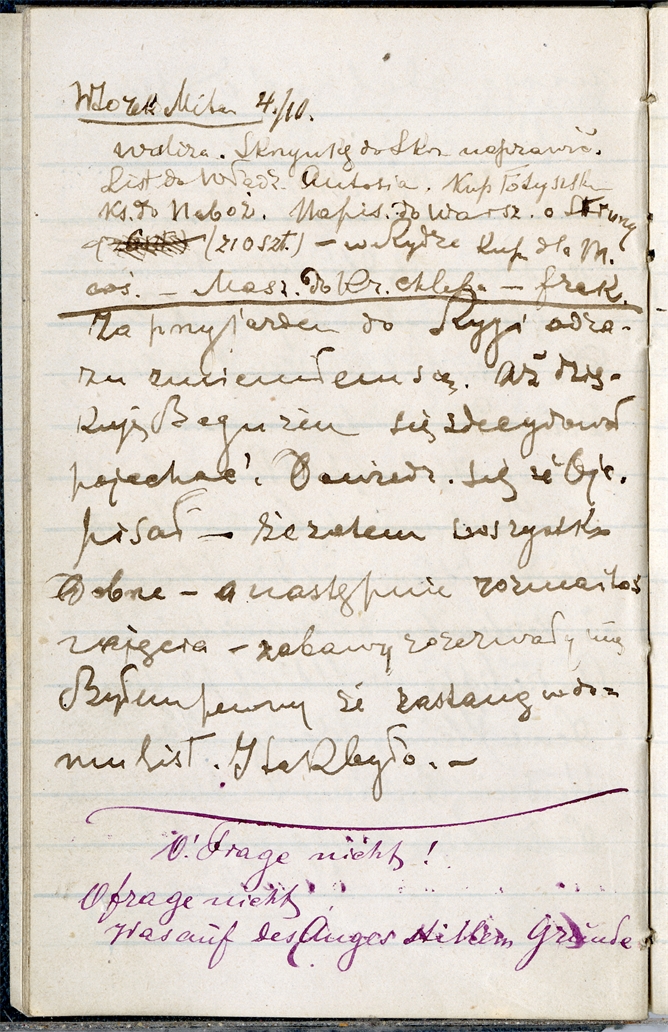 Wtorek Mitau 4./10.
waliza. Skrzynkę do Skrz. naprawić.
List do Władz. Antosia. Kup
Ks. do Naboż. Napis. do Warsz. o Struny
(zło szt.) – w Rydze Kup. dla M.
coś. – Masz. do Kr. chleba – frak.
Za przyjazdem do Rygi odra-
zu zmieniłem się. Aż dzię-
kuję Bogu żem się zdecydował
pojechać. Dowiedz. się że Ojc.
pisał – że zatem wszystko
Dobrze – a następnie rozmaitoś
zajęcia – zabawy rozerwały mię
Byłem pewny że zastanę w do=
mu list. I tak było. –
O! Frage nicht!
O frage nicht
Was auf des Auges stillem Grunde